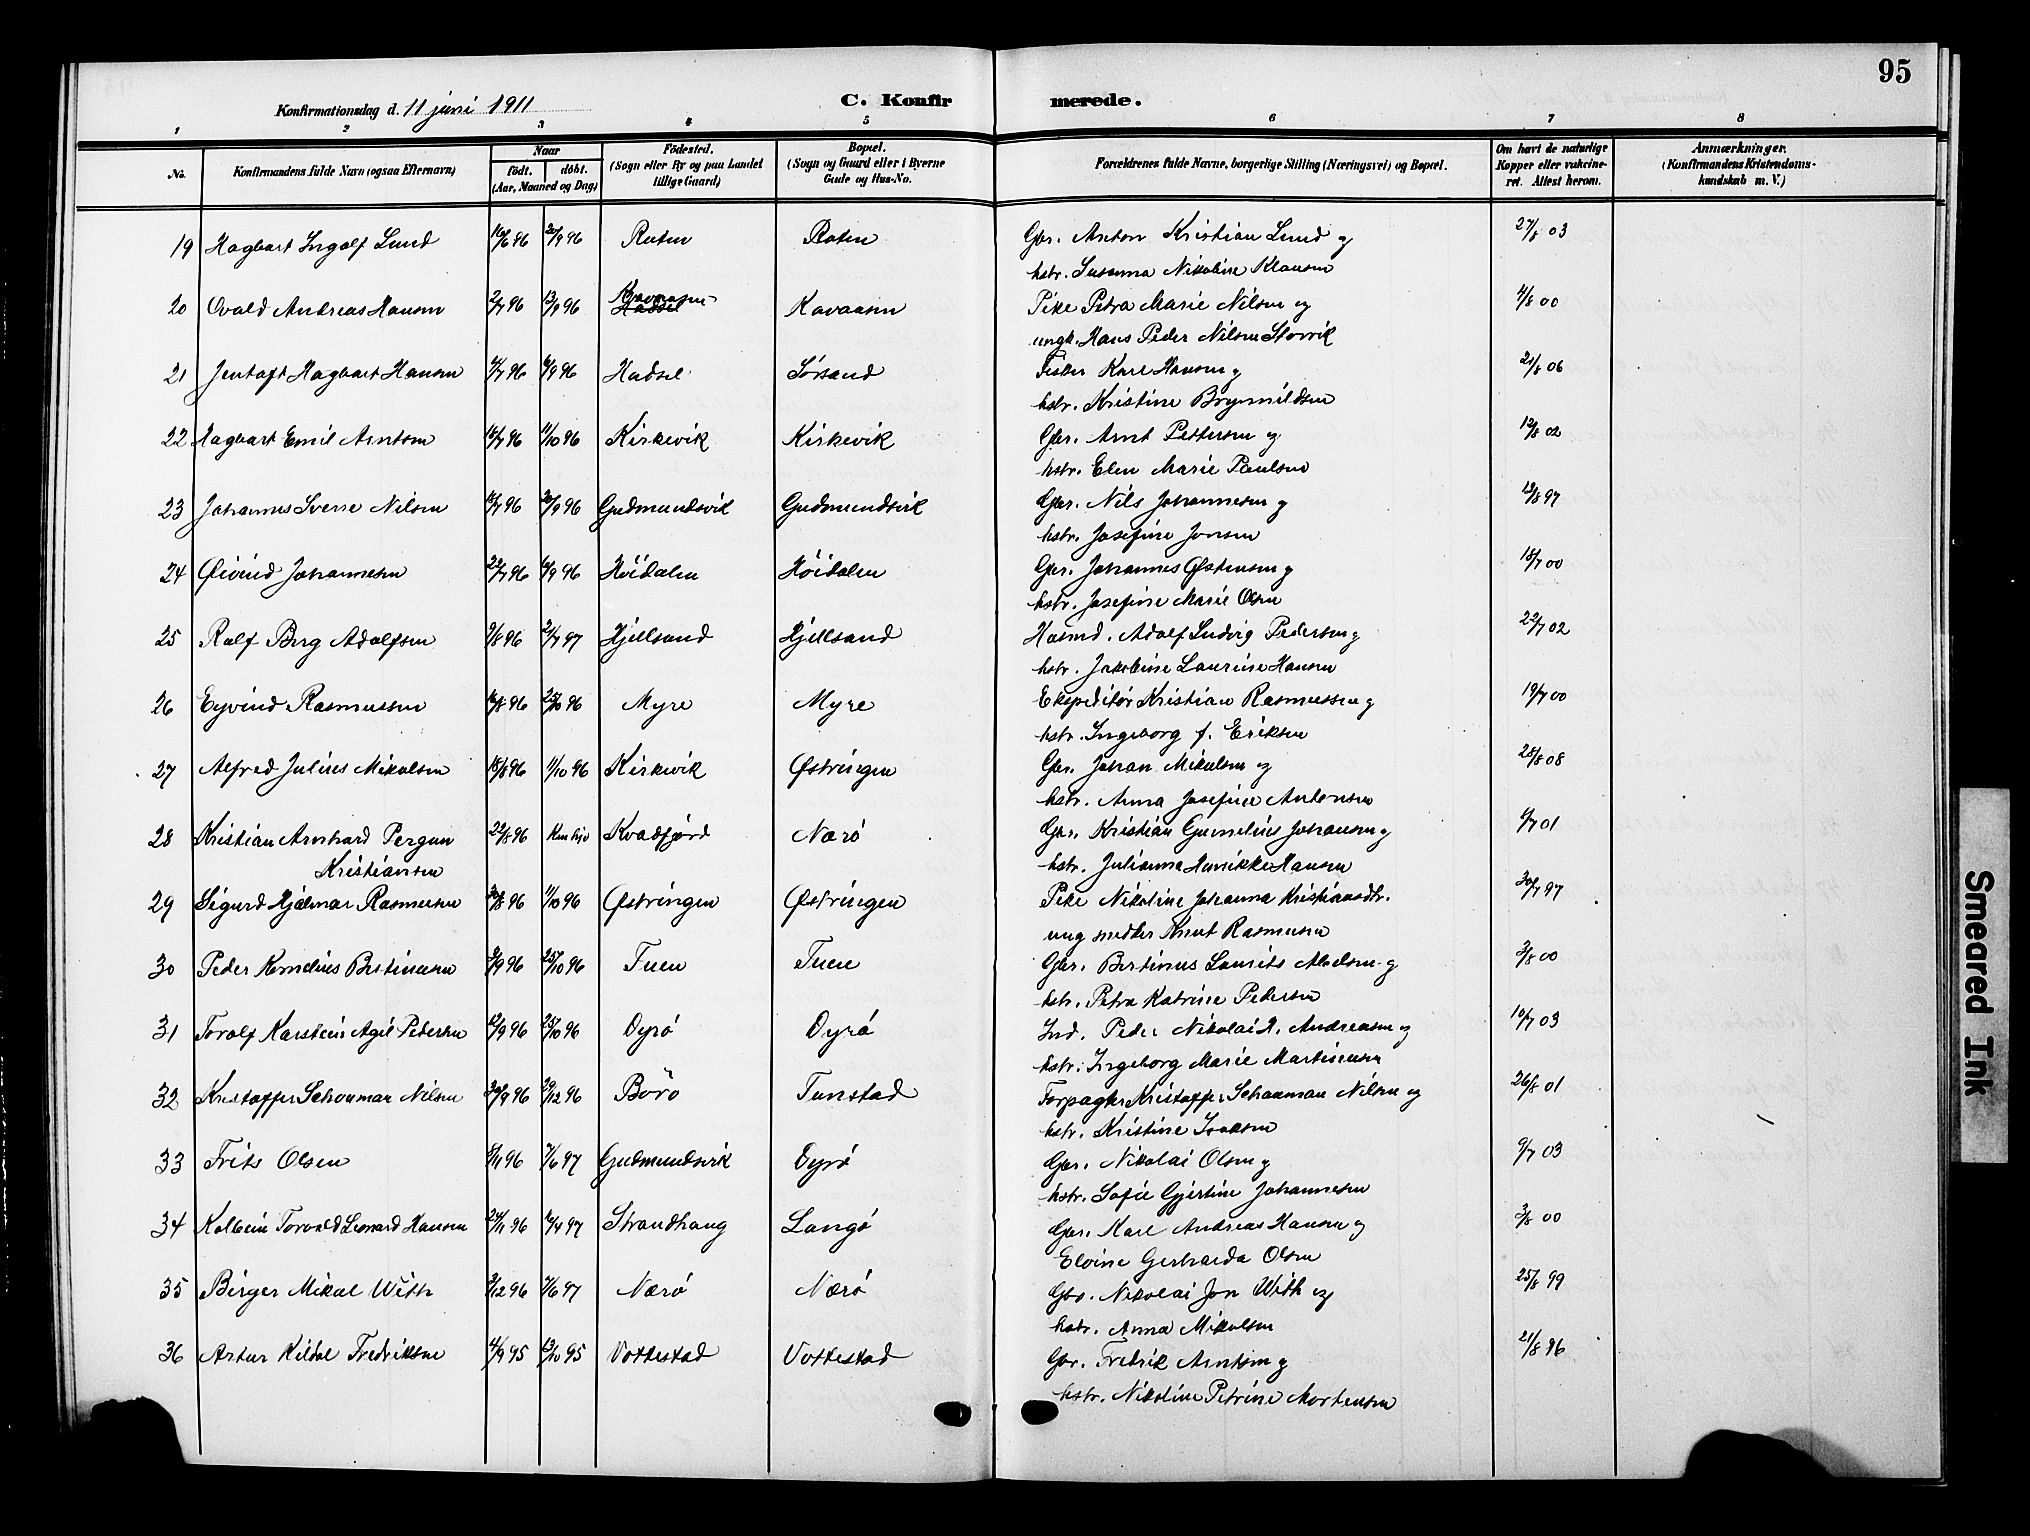 95
Konfirmationsdag d. 11 juni 1911
C. Konfirmerede.
1 2 3 4 5 6 7 8
No.
Konfirmandens fulde Navn (ogsaa Efternavn)
Naar
født. døbt.
(Aar, Maaned og Dag)
Födested.
(Sogn eller By og paa Landet tillige Gaard)
Bopæl.
(Sogn og Gaard eller i Byerne Gade og Hus-No.
Forældrenes fulde Navne, borgerlige Stilling (Næringsvei) og Bopæl.
Om havt de naturlige Kopper eller vakcineret. Attest herom.
Anmærkninger.
(Konfirmandens Kristendomskundskab m. V.)
19 Hagbart Ingolf Lund 16/6 96 20/9 96 Roten Roten Gbr. Anton Kristian Lund og 27/8 03
hstr. Susanna Nikoline Klausen
20 Ovald Andreas Hansen 2/7 96 13/9 96 Kavaasen Kavaasen Pike Petra Marie Nilsen og 4/8 00
ungk. Hans Peder Nilsen Storvik
21 Jentoft Hagbart Hansen 4/7 96 6/9 96 Hadsel Sørsand Fisker Karl Hansen og 21/8 06
hstr. Kristine Brynnildsen
22 Hagbart Emil Arntsen 15/7 96 11/10 96 Kirkevik Kirkevik Gbr. Arnt Pettersen og 12/8 02
hstr. Elen Marie Paulsen
23 Johannes Sverre Nilsen 18/7 96 20/9 96 Gudmundsvik Gudmundsvik Gbr. Nils Johannesen og 12/8 97
hstr. Josefine Jonsen
24 Øivind Johannesen 22/7 96 6/9 96 Høidalen Høidalen Gbr. Johannes Østensen og 18/7 00
hstr. Josefine Marie Olsen
25 Ralf Berg Adolfsen 9/8 96 21/7 97 Hjellsand Hjellsand Husmd. Adolf Ludvig Pedersen og 22/7 02
hstr. Jakobine Laurine Hansen
26 Eyvind Rasmussen 16/8 96 25/10 96 Myre Myre Ekspeditör Kristian Rasmussen og 19/7 00
hstr. Ingeborg f. Eriksen
27 Alfred Julius Mikalsen 18/8 96 11/10 96 Kirkevik Østringen Gbr. Johan Mikalsen og 28/8 08
hstr. Anna Josefine Antonsen
28 Kristian Arnhard Pergun 22/8 96 Kvædfjord Nærø Gbr. Kristian Gumelius Johansen og 9/7 01
Kristiansen hstr. Julianna Henrikke Hansen
29 Sigurd Hjalmar Rasmusen 30/8 96 11/10 96 Østringen Østringen Pike Nikoline Johanna Kristiansdtr. 30/7 97
ung snedker Knut Rasmusen
30 Peder Kornelius Bertinusen 3/9 96 25/10 96 Tuen Tuen Gbr. Bertinus Laurits Abelsen og 3/8 00
hstr. Petra Katrine Pedersen
31 Toralf Karstein Agil Pedersen 12/9 96 25/10 96 Dyrö Dyrö Ind. Peder Nikolai A. Andreasen og 10/7 03
hstr. Ingeborg Marie Martinusen
32 Kristoffer Schouman Nilsen 30/9 96 29/12 96 Börö Tunstad Forpagter Kristoffer Schaaman Nilsen og 26/8 01
hstr. Kristine Isaksen
33 Frits Olsen 8/11 96 7/6 97 Gudmundsvik Dyrö Gbr. Nikolai Olsen og 9/7 03
hstr. Sofie Gjertine Johannesen
34 Kolbein Torvald Leonard Hansen 24/11 96 16/4 97 Strandhaug Langö Gbr. Karl Andreas Hansen og 3/8 00
Elvine Gerharda Olsen
35 Birger Mikal With 3/12 96 7/6 97 Nærö Nærö Gbr. Nikolai Jon With og 25/8 99
hstr. Anna Mikalsen
36 Artur Kildal Fredriksen 4/9 95 13/10 95 Vottestad Vottestad Gbr. Fredrik Arntsen og 21/8 96
hstr. Nikoline Petrine Mortensen
Smeared Ink